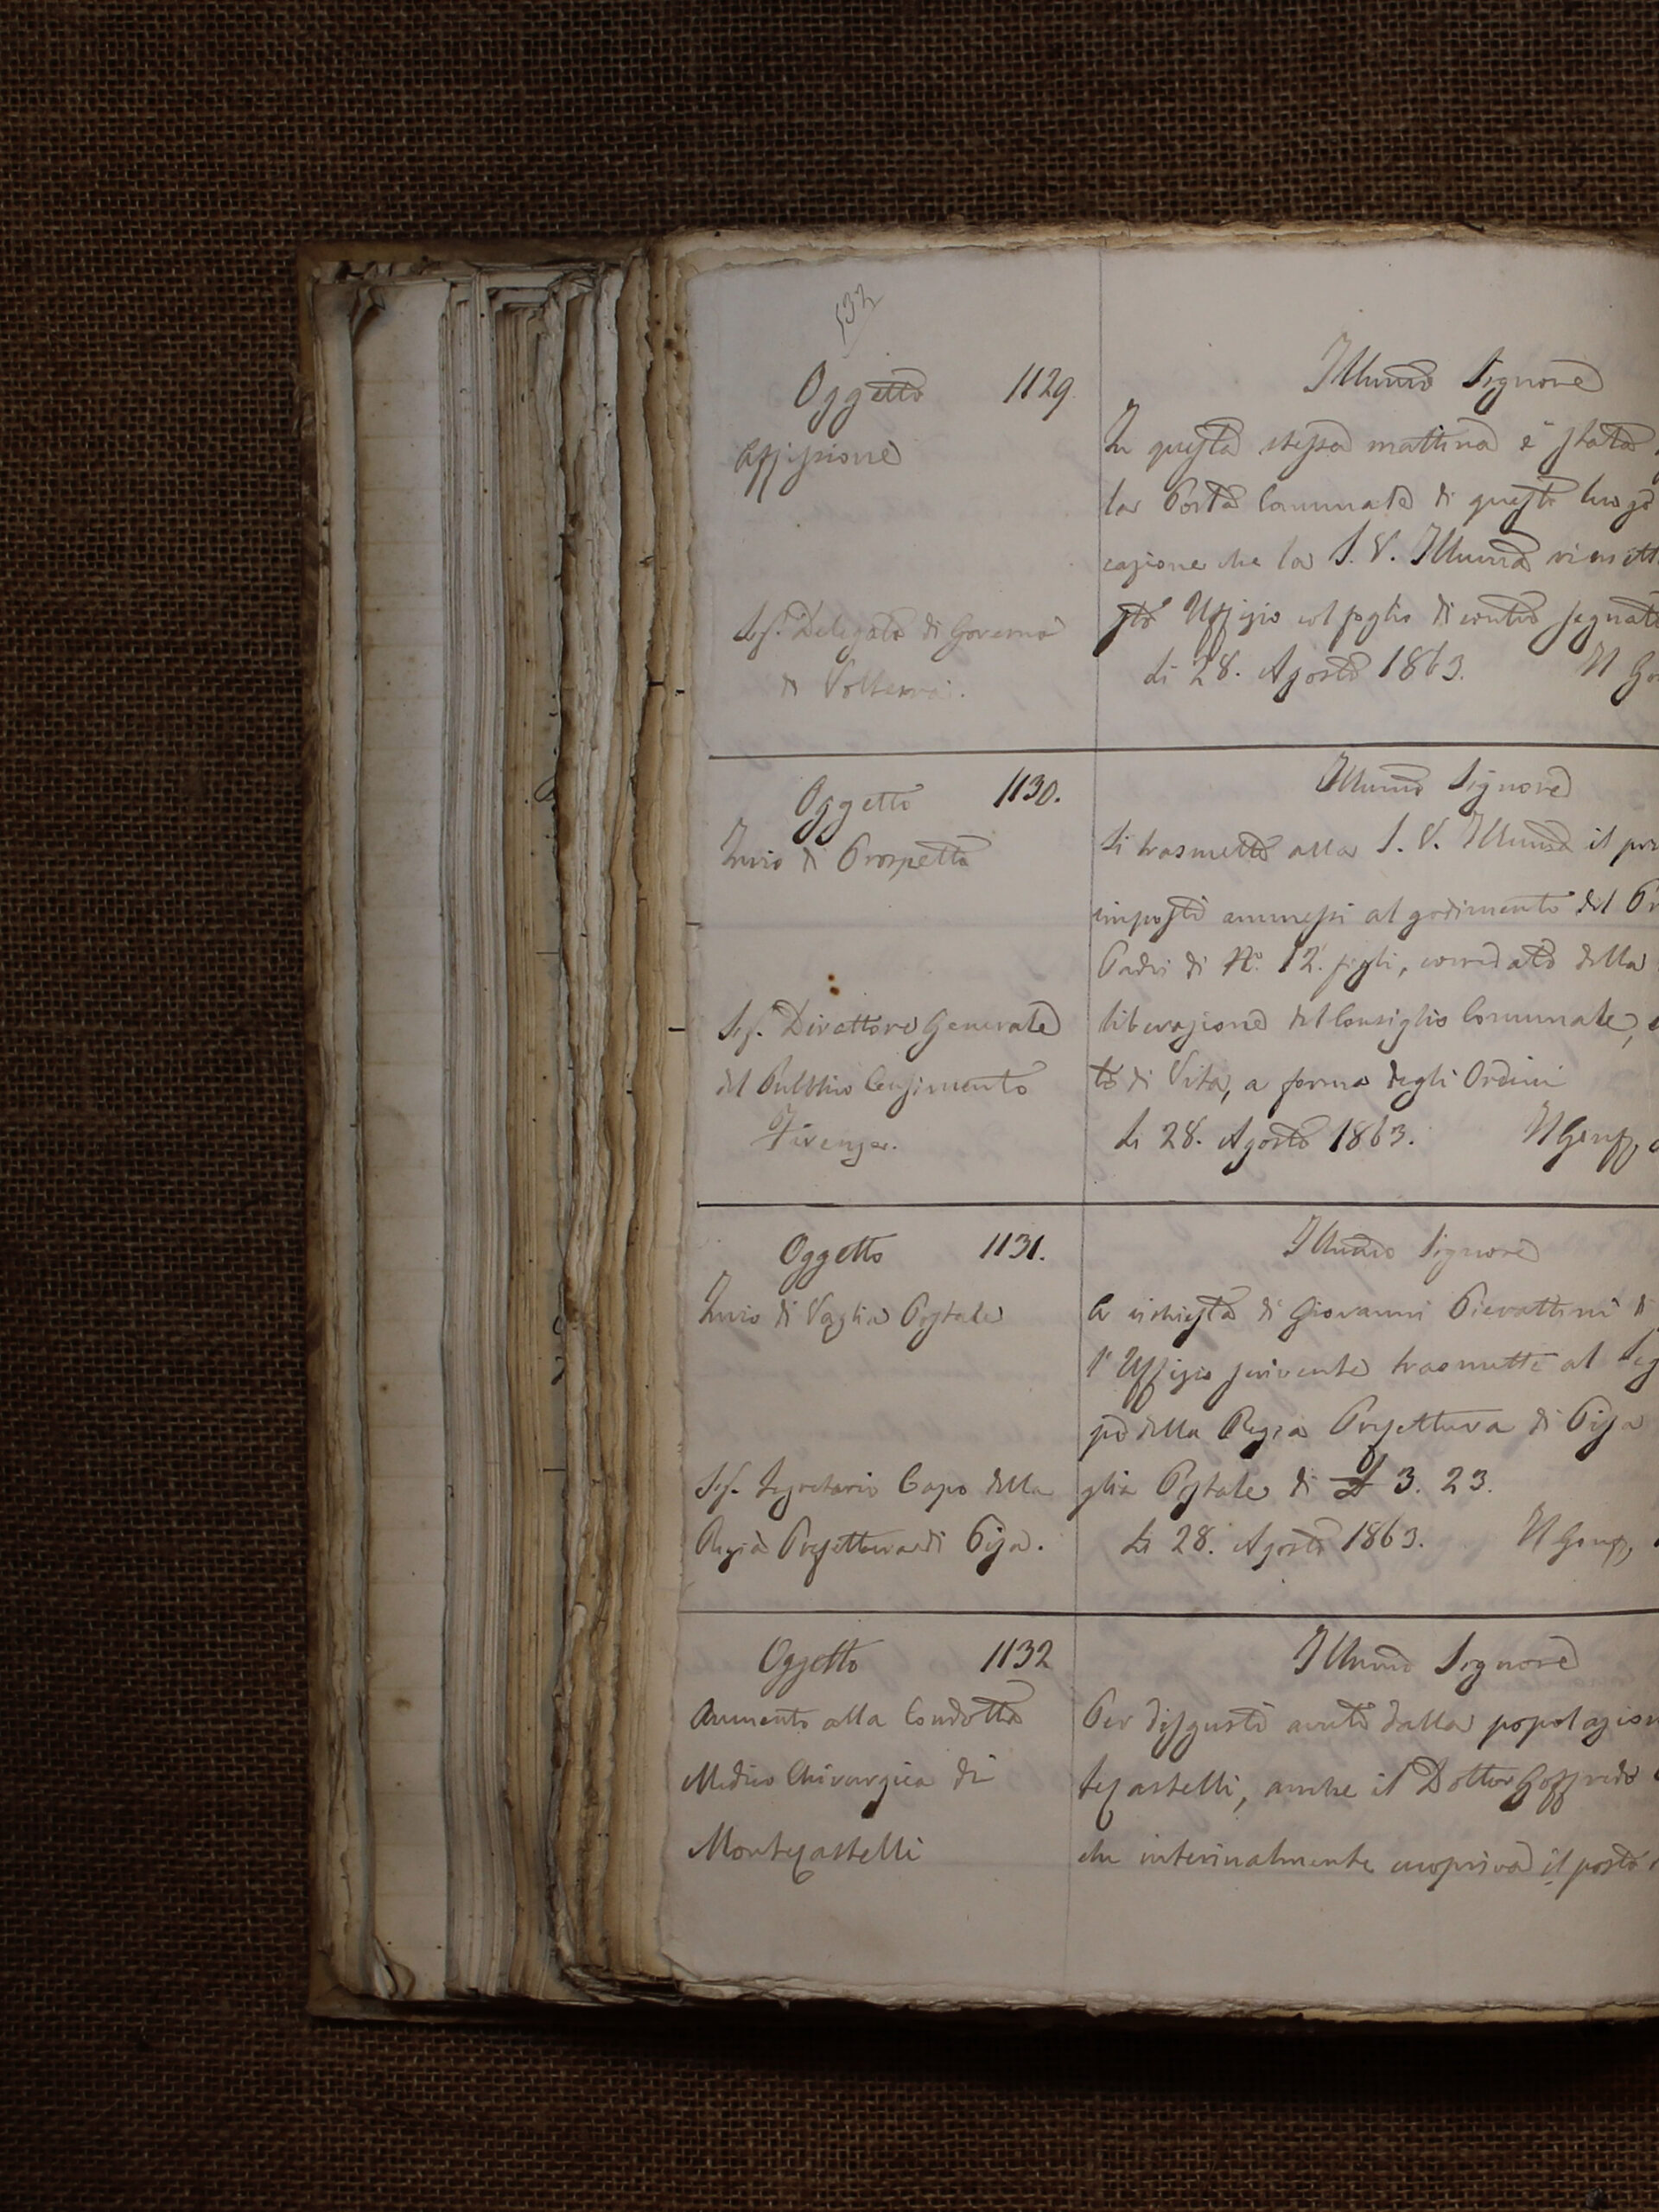 532
Oggetto 1129
Affissione
Sig. Delegato di Governo
di Volterra.
Illmo Signore
In questa stessa mattina è stata
la Porta Comunale di questo luogo
cazione che la S. V. Illma rimett
sto Uffizio col foglio di contro segnato
Li 28. Agosto 1863. Il Go
Oggetto 1130.
Invio di Prospetto
Sig. Direttore Generale
del Pubblico Censimento
Firenze.
Illmo Signore
Si trasmette alla S. V. Illma il pro
imposti ammessi al godimento del Pr
Padri di N.º 12. figli, corredato della
liberazione del Consiglio Comunale,
to di Vita, a forma degli Ordini
Li 28. Agosto 1863. Il Gonf,
Oggetto 1131.
Invio di Vaglia Postale
Sig. Segretario Capo della
Regia Prefettura di Pisa.
Illmo Signore
A richiesta di Giovanni Pierattini di
l'Uffizio scrivente trasmette al Seg
po della Regia Prefettura di Pisa
glia Postale di £ 3. 23.
Li 28. Agosto 1863. Il Gonf,
Oggetto 1132
Aumento alla Condotta
Medico Chirurgica di
Montecastelli
Illmo Signore
Per disgusti avuti dalla popolazion
tecastelli, anche il Dottor Goffredo
che interinalmente cuopriva il posto